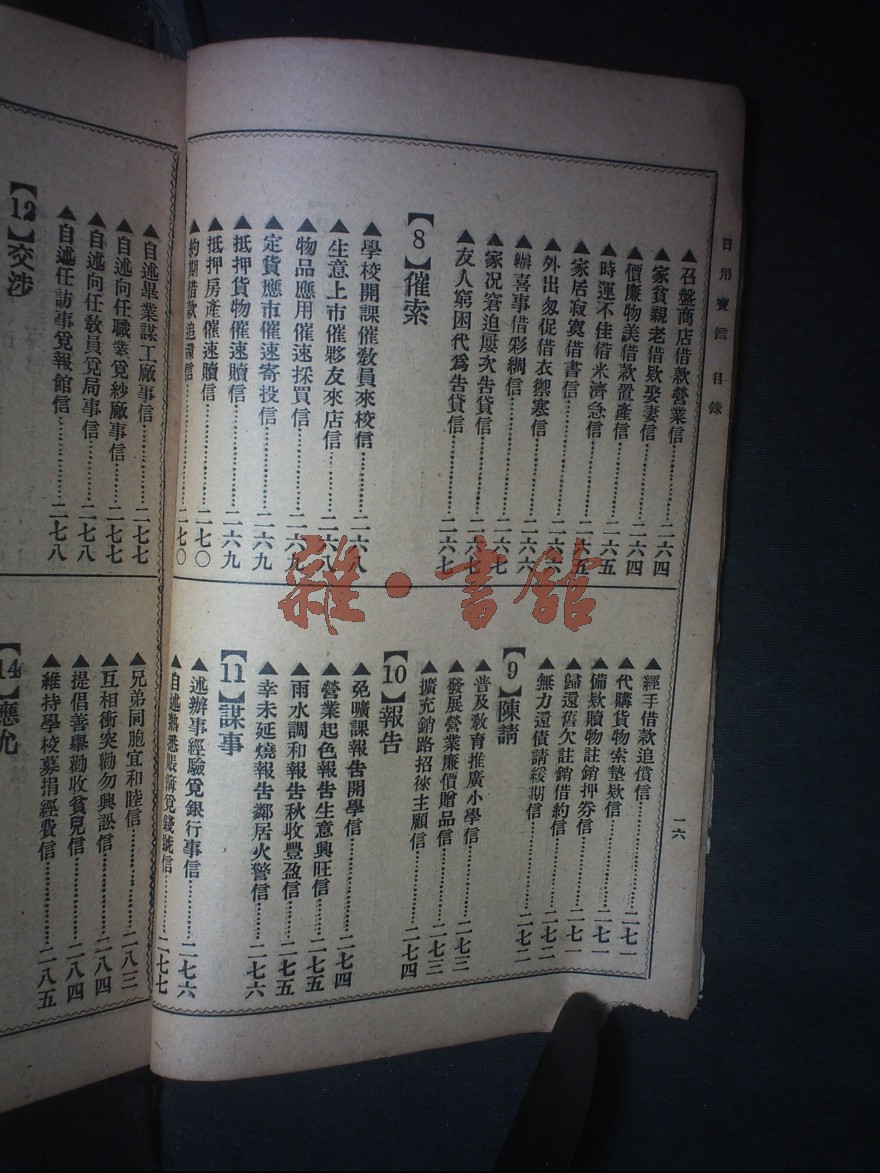 日用寶鑑 目錄
一六
▲召盤商店借款營業信………二六四
▲家貧親老借欵娶妻信………二六四
▲價廉物美借款置產信………二六四
▲時運不佳借米濟急信………二六五
▲家居寂寞借書信………二六五
▲外出匆促借衣禦寒信………二六六
▲辦喜事借彩綢信………二六六
▲家况窘迫屢次告貸信………二六七
▲友人窮困代爲告貸信………二六七
【8】催索
▲學校開課催敎員來校信………二六八
▲生意上市催夥友來店信………二六八
▲物品應用催速採買信………二六九
▲定貨應市催速寄投信………二六九
▲抵押貨物催速贖信………二六九
▲抵押房產催速贖信………二七〇
約期借款追還信………二七〇
▲經手借款追償信………二七一
▲代購貨物索墊欵信………二七一
▲備欵贖物註銷押券信………二七一
▲歸還舊欠註銷借約信………二七二
▲無力還債請緩期信………二七二
【9】陳請
▲普及敎育推廣小學信………二七三
▲發展營業廉價贈品信………二七三
▲擴充銷路招徠主顧信………二七四
【10】報告
▲免曠課報告開學信………二七四
▲營業起色報告生意興旺信………二七五
▲雨水調和報告秋收豐盈信………二七五
▲幸未延燒報告鄰居火警信………二七六
【11】謀事
▲述辦事經驗覓銀行事信………二七六
▲自述熟悉賬簿覓錢號信………二七七
▲自述畢業謀工廠事信………二七七
▲自述向任職業覓紗廠事信………二七七
▲自述向任敎員覓局事信………二七八
▲自述任訪事覓報館信………二七八
【12】交涉
▲兄弟同胞宜和睦信………二八三
▲互相衝突勸勿興訟信………二八四
▲提倡善舉勸收貧兒信………二八四
▲維持學校募捐經費信………二八五
【14】應允
雜·書館